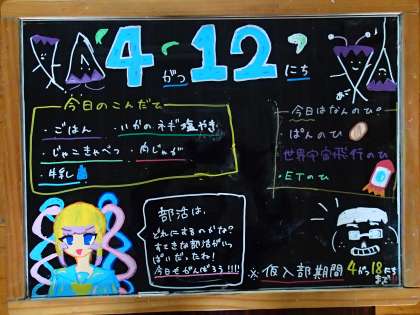 4がつ12にち
今日のこんだて
・ごはん ・いかのネギ塩やき
・じゃこきゃべつ ・肉じゃが
・牛乳
今日はなんのひ?
・ぱんのひ
・世界宇宙飛行のひ
・ETのひ
部活は、
どれにするのかな?
すてきな部活がいっ
ぱいだったね!
今日もがんばろう!!!!
※仮入部期間 4がつ18にちまで!!